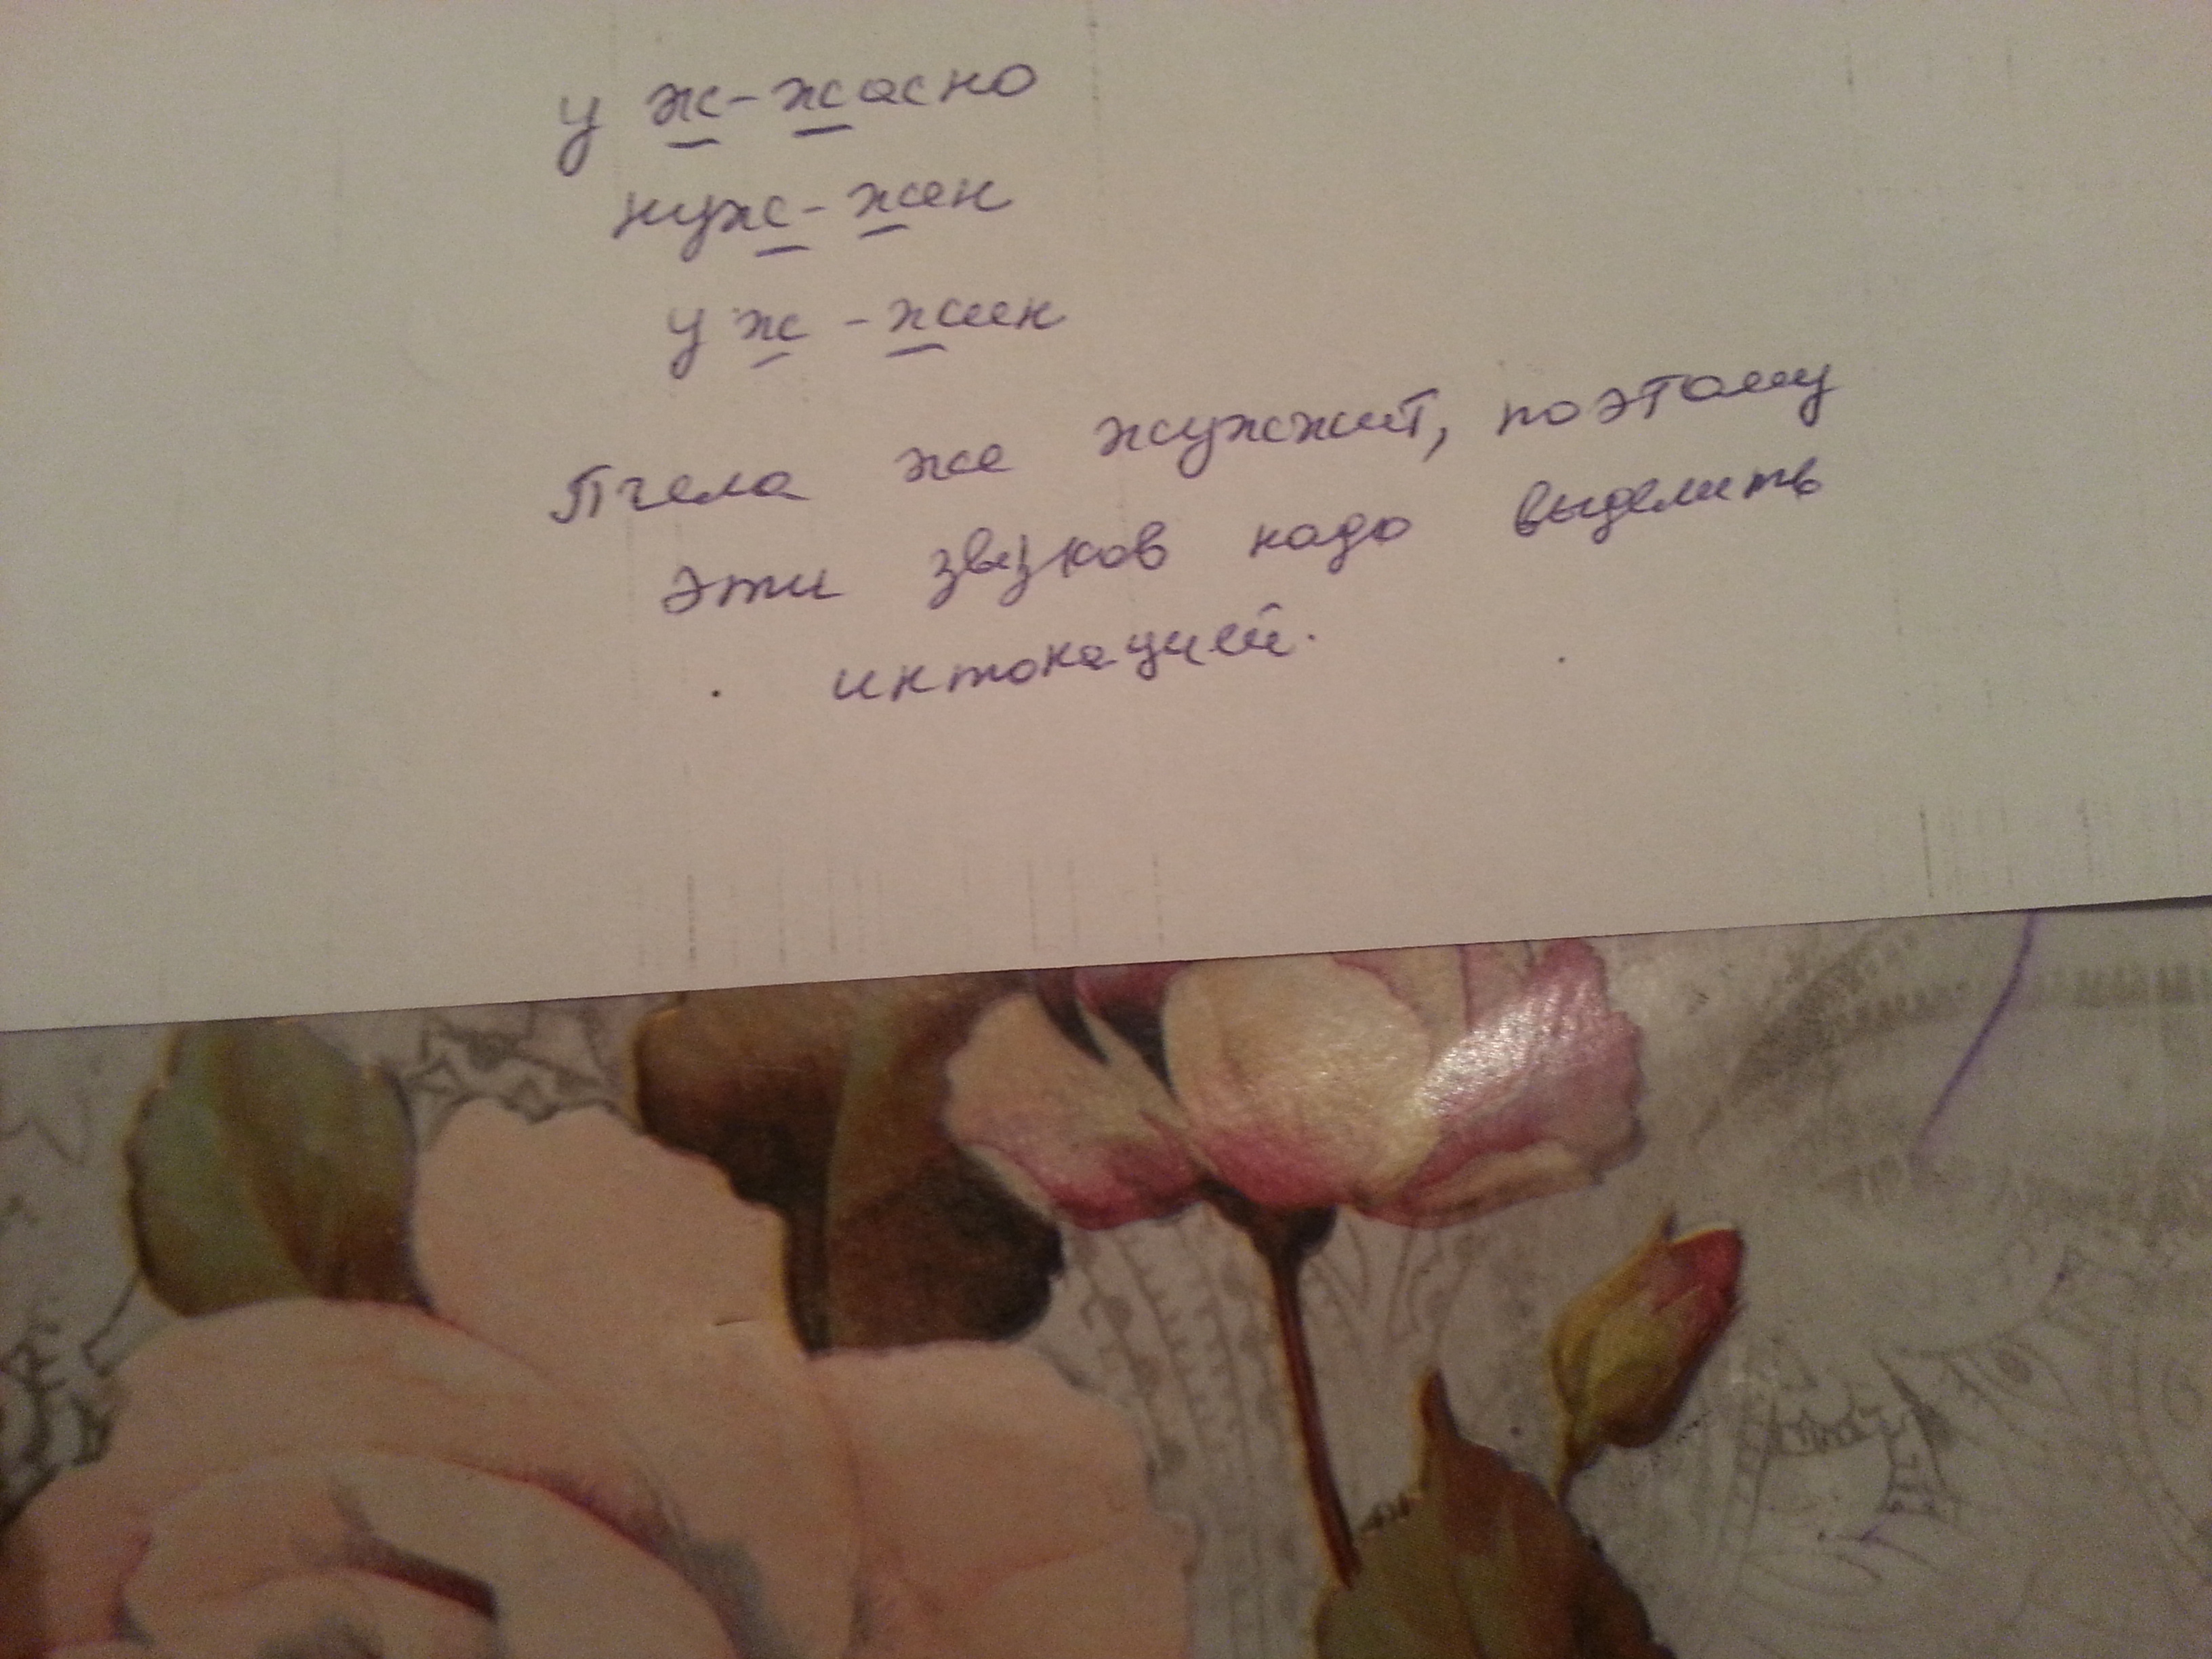 у ж-жасно
нуж-жен
уж-жин
Пчела же жужжит, поэтому
эти звуков надо выделить
интонацией.